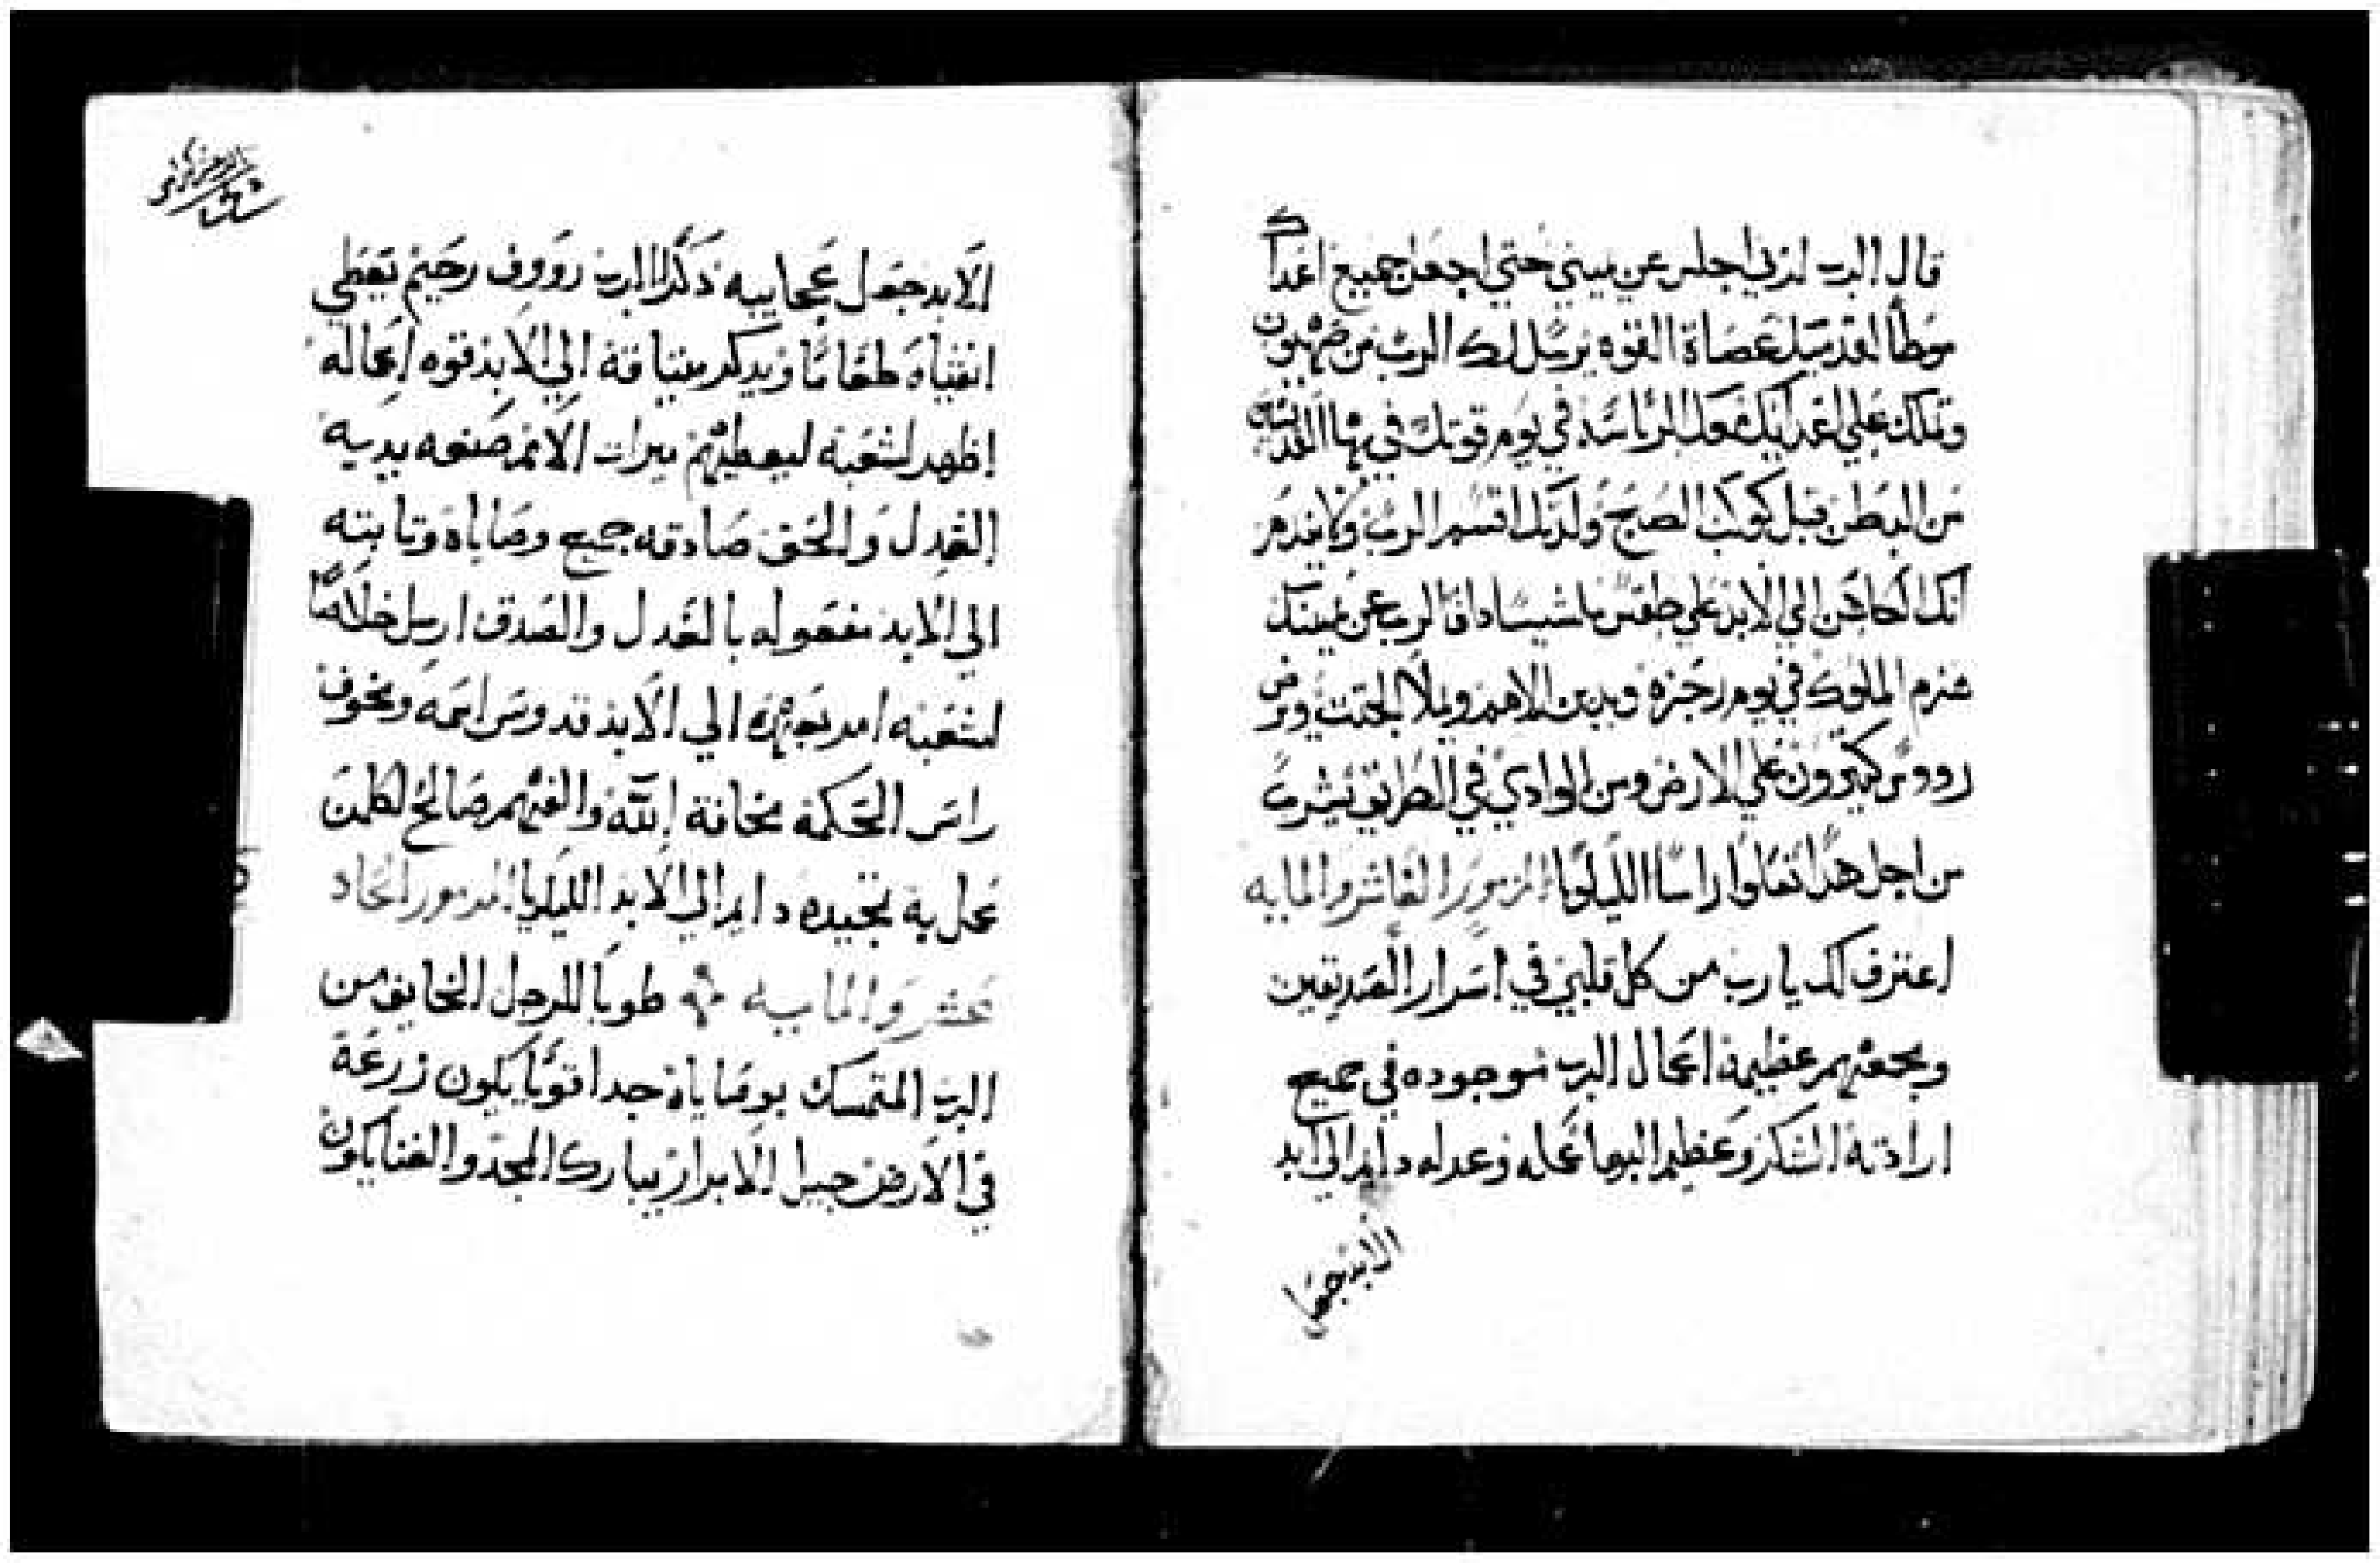 قال الرب لربي اجلس عن يميني حتي اجعل جميع اعداك
موطأ لقدميك عصاة القوه يرسل لك الرب من صهيون
وتملك علي اعدايك معك الرياسه في يوم قوتك في بها القديسين
من البطن قبل كوكب الصبح ولدتك اقسم الرب ولا يندم
انك الكاهن الي الابد علي طقس ملشيساداق الرب عن يمينك
هزم الملوك في يوم رجزه ويدين الامم ويملا الجثث ويرض
رووس كثيرون علي الارض ومن الوادي في الطريق يشرب
من اجل هذا تعلوا راسا الليلويا المزمور العاشر والمايه
اعترف لك يارب من كل قلبي في اسرار الصديقين
وبجمعهم عظيمة اعمال الرب موجوده في جميع
ارادته الشكر وعظيم البها عمله وعدله دايم الي ابد
الابد جعل
الابد جعل عجاييه ذكرا الرب رووف رحيم يعطي
اتقياه طعاما ويذكر ميثاقة الي الابد قوه اعماله
اظهر لشعبه ليعطيهم ميرات الامم صنعه يديه
العدل والحق صادقه جميع وصاياه وتابته
الي الابد مفعوله بالعدل والصدق ارسل خلاصا
لشعبه امر بعهده الي الابد قدوس اسمه ومخوف
راس الحكمة مخافة الله والفهم صالح لكلمن
عمل به تمجيده دايم الي الابد الليلويا المزمور الحاد
عشر والماييه طوبا للرجل الخايف من
الرب المتمسك بوصاياه جدا قويا يكون زرعة
في الارض جيل الابرار يبارك المجد والغنا يكون